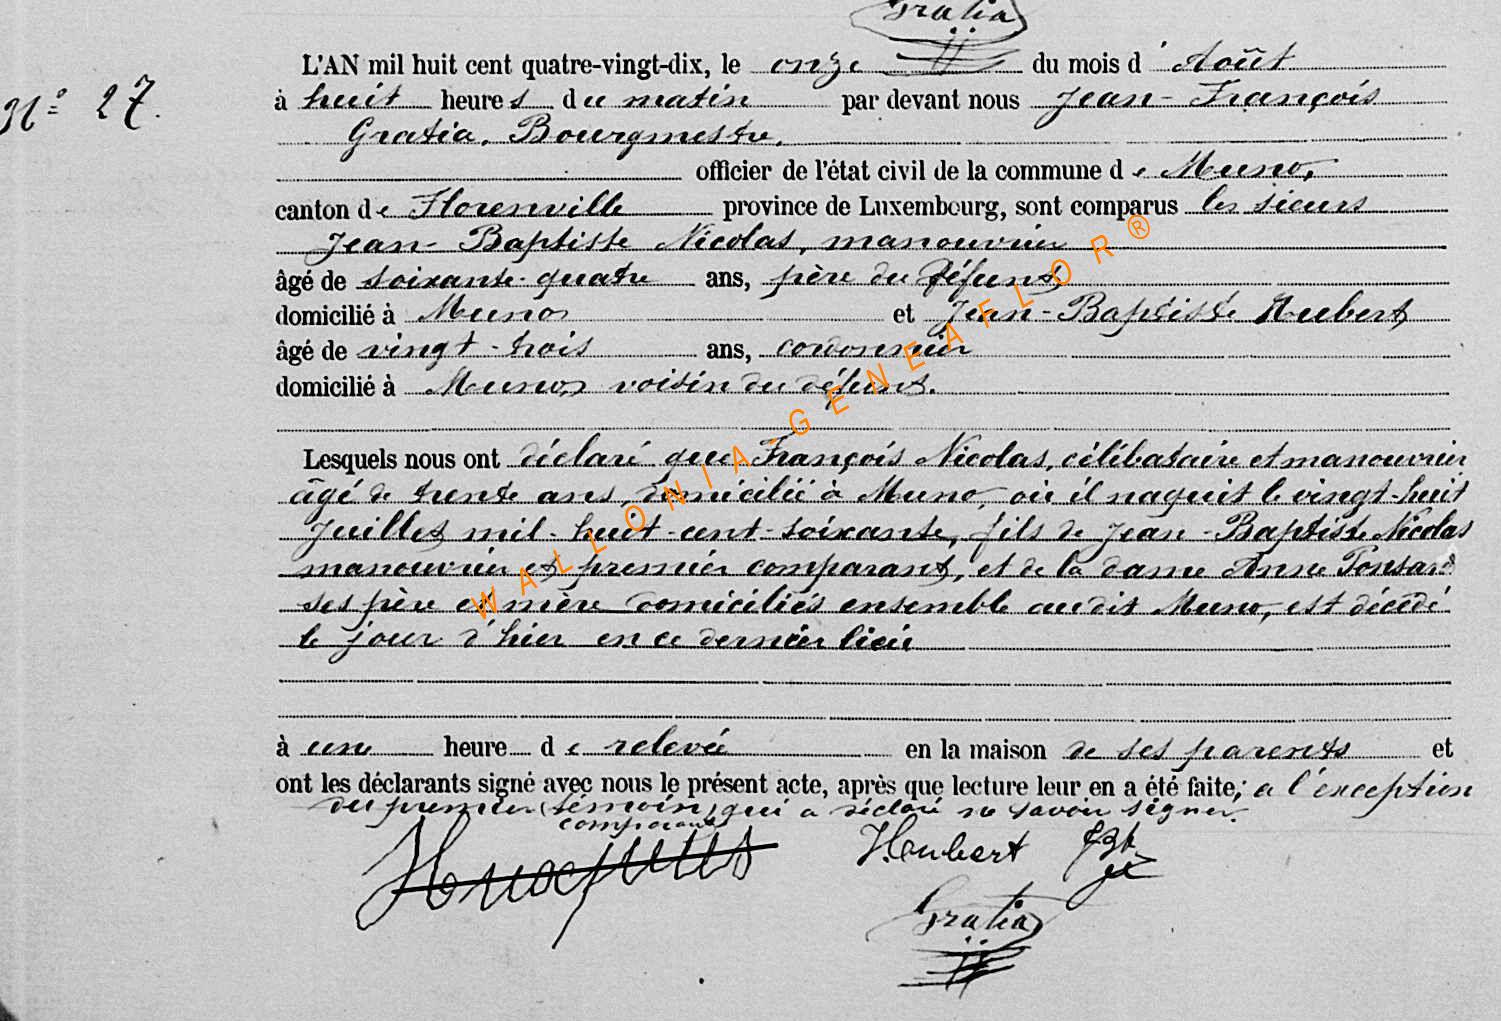 Gratia
L'AN mil huit cent quatre-vingt-dix, le onze du mois d' Août
N° 27.
à huit heures du matin par devant nous Jean-François
Gratia, Bourgmestre,
officier de l'état civil de la commune de Muno,
canton de Florenville province de Luxembourg, sont comparus les sieurs
Jean-Baptiste Nicolas, manouvrier
âgé de soixante-quatre ans, père du défunt
domicilié à Muno et Jean-Baptiste Hubert
âgé de vingt-trois ans, cordonnier
domicilié à Muno, voisin du défunt.
Lesquels nous ont déclaré que François Nicolas, célibataire et manouvrier
âgé de trente ans, domicilié à Muno, où il naquit le vingt-huit
Juillet mil-huit-cent-soixante, fils de Jean-Baptiste Nicolas
manouvrier et premier comparant, et de la dame Anne Ponsard
ses père et mère domiciliés ensemble audit Muno, est décédé
le jour d'hier en ce dernier lieu
à une heure de relevée en la maison de ses parents et
ont les déclarants signé avec nous le présent acte, après que lecture leur en a été faite, à l'exception
du premier (témoin) qui a déclaré ne savoir signer.
comparant
Houbert JBt
Gratia
WALLONIA-GENEAFLOR®